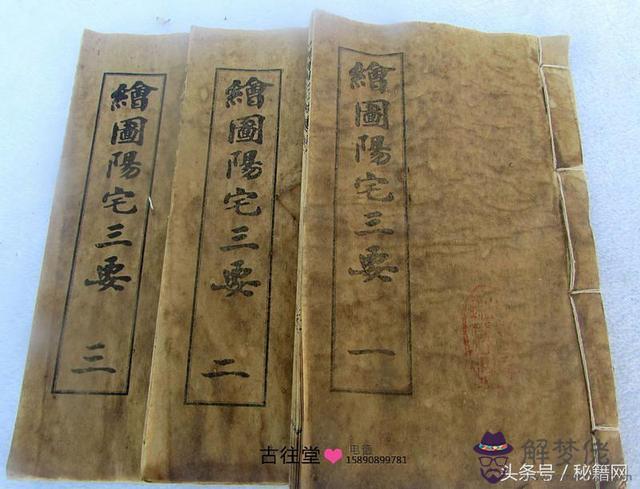 繪圖陽宅三要 三
繪圖陽宅三要 二
繪圖陽宅三要 一
古往堂❤电信
15890899781
解梦佬
头条号／秘籍网